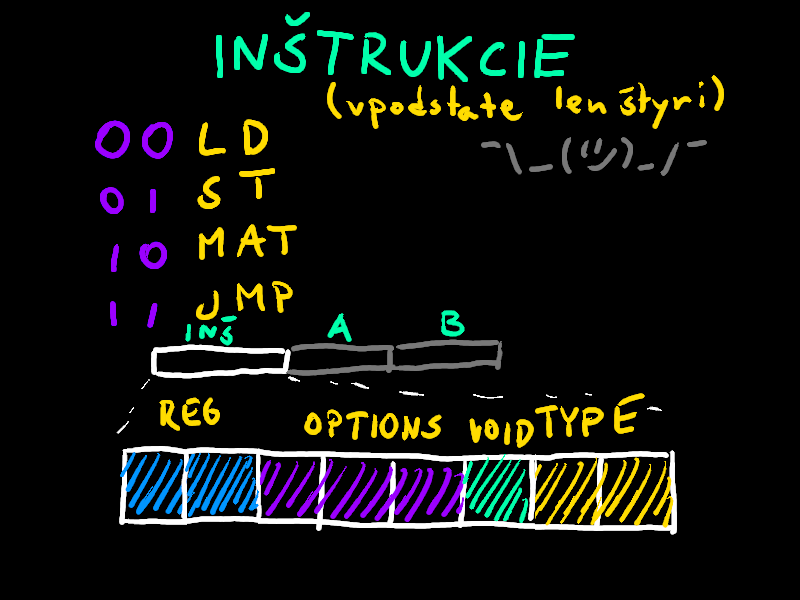 INŠTRUKCIE
(vpodstate len štyri)
¯\_(ツ)_/¯
00 LD
01 ST
10 MAT
11 JMP
INŠ A B
REG OPTIONS VOID TYPE